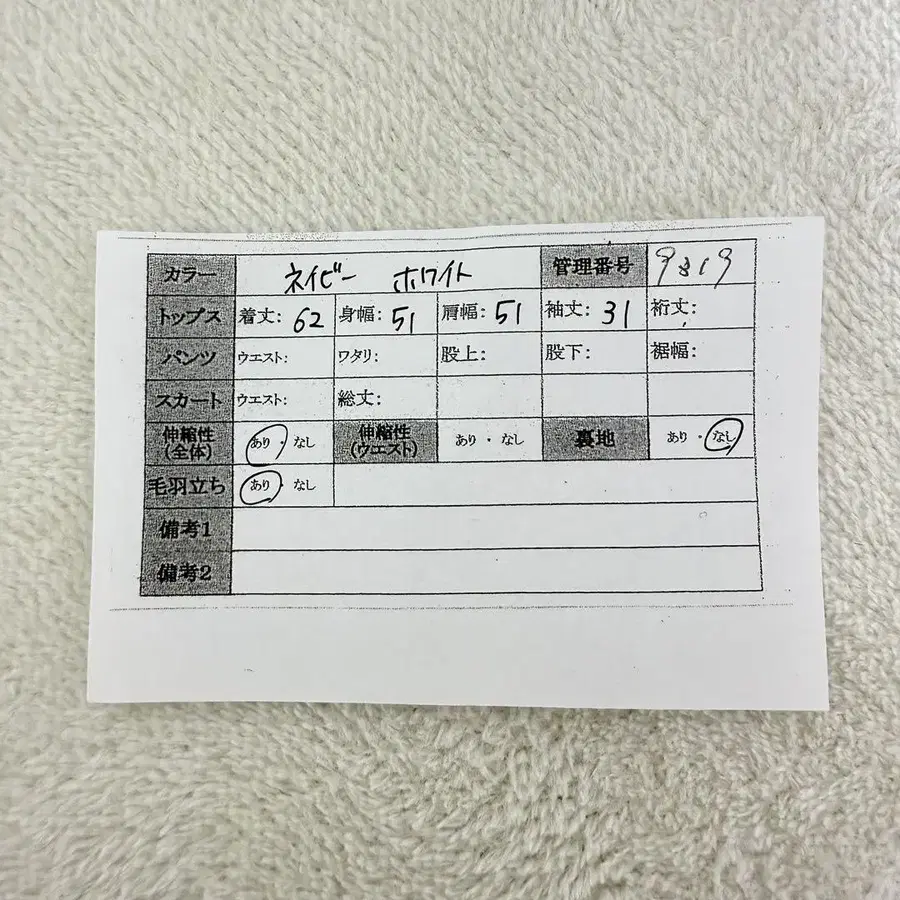 カラー ネイビー ホワイト 管理番号 9819
トップス 着丈: 62 身幅: 51 肩幅: 51 袖丈: 31 裄丈:
パンツ ウエスト: ワタリ: 股上: 股下: 裾幅:
スカート ウエスト: 総丈:
伸縮性(全体) あり・なし 伸縮性(ウエスト) あり・なし 裏地 あり・なし
毛羽立ち あり・なし
備考1
備考2